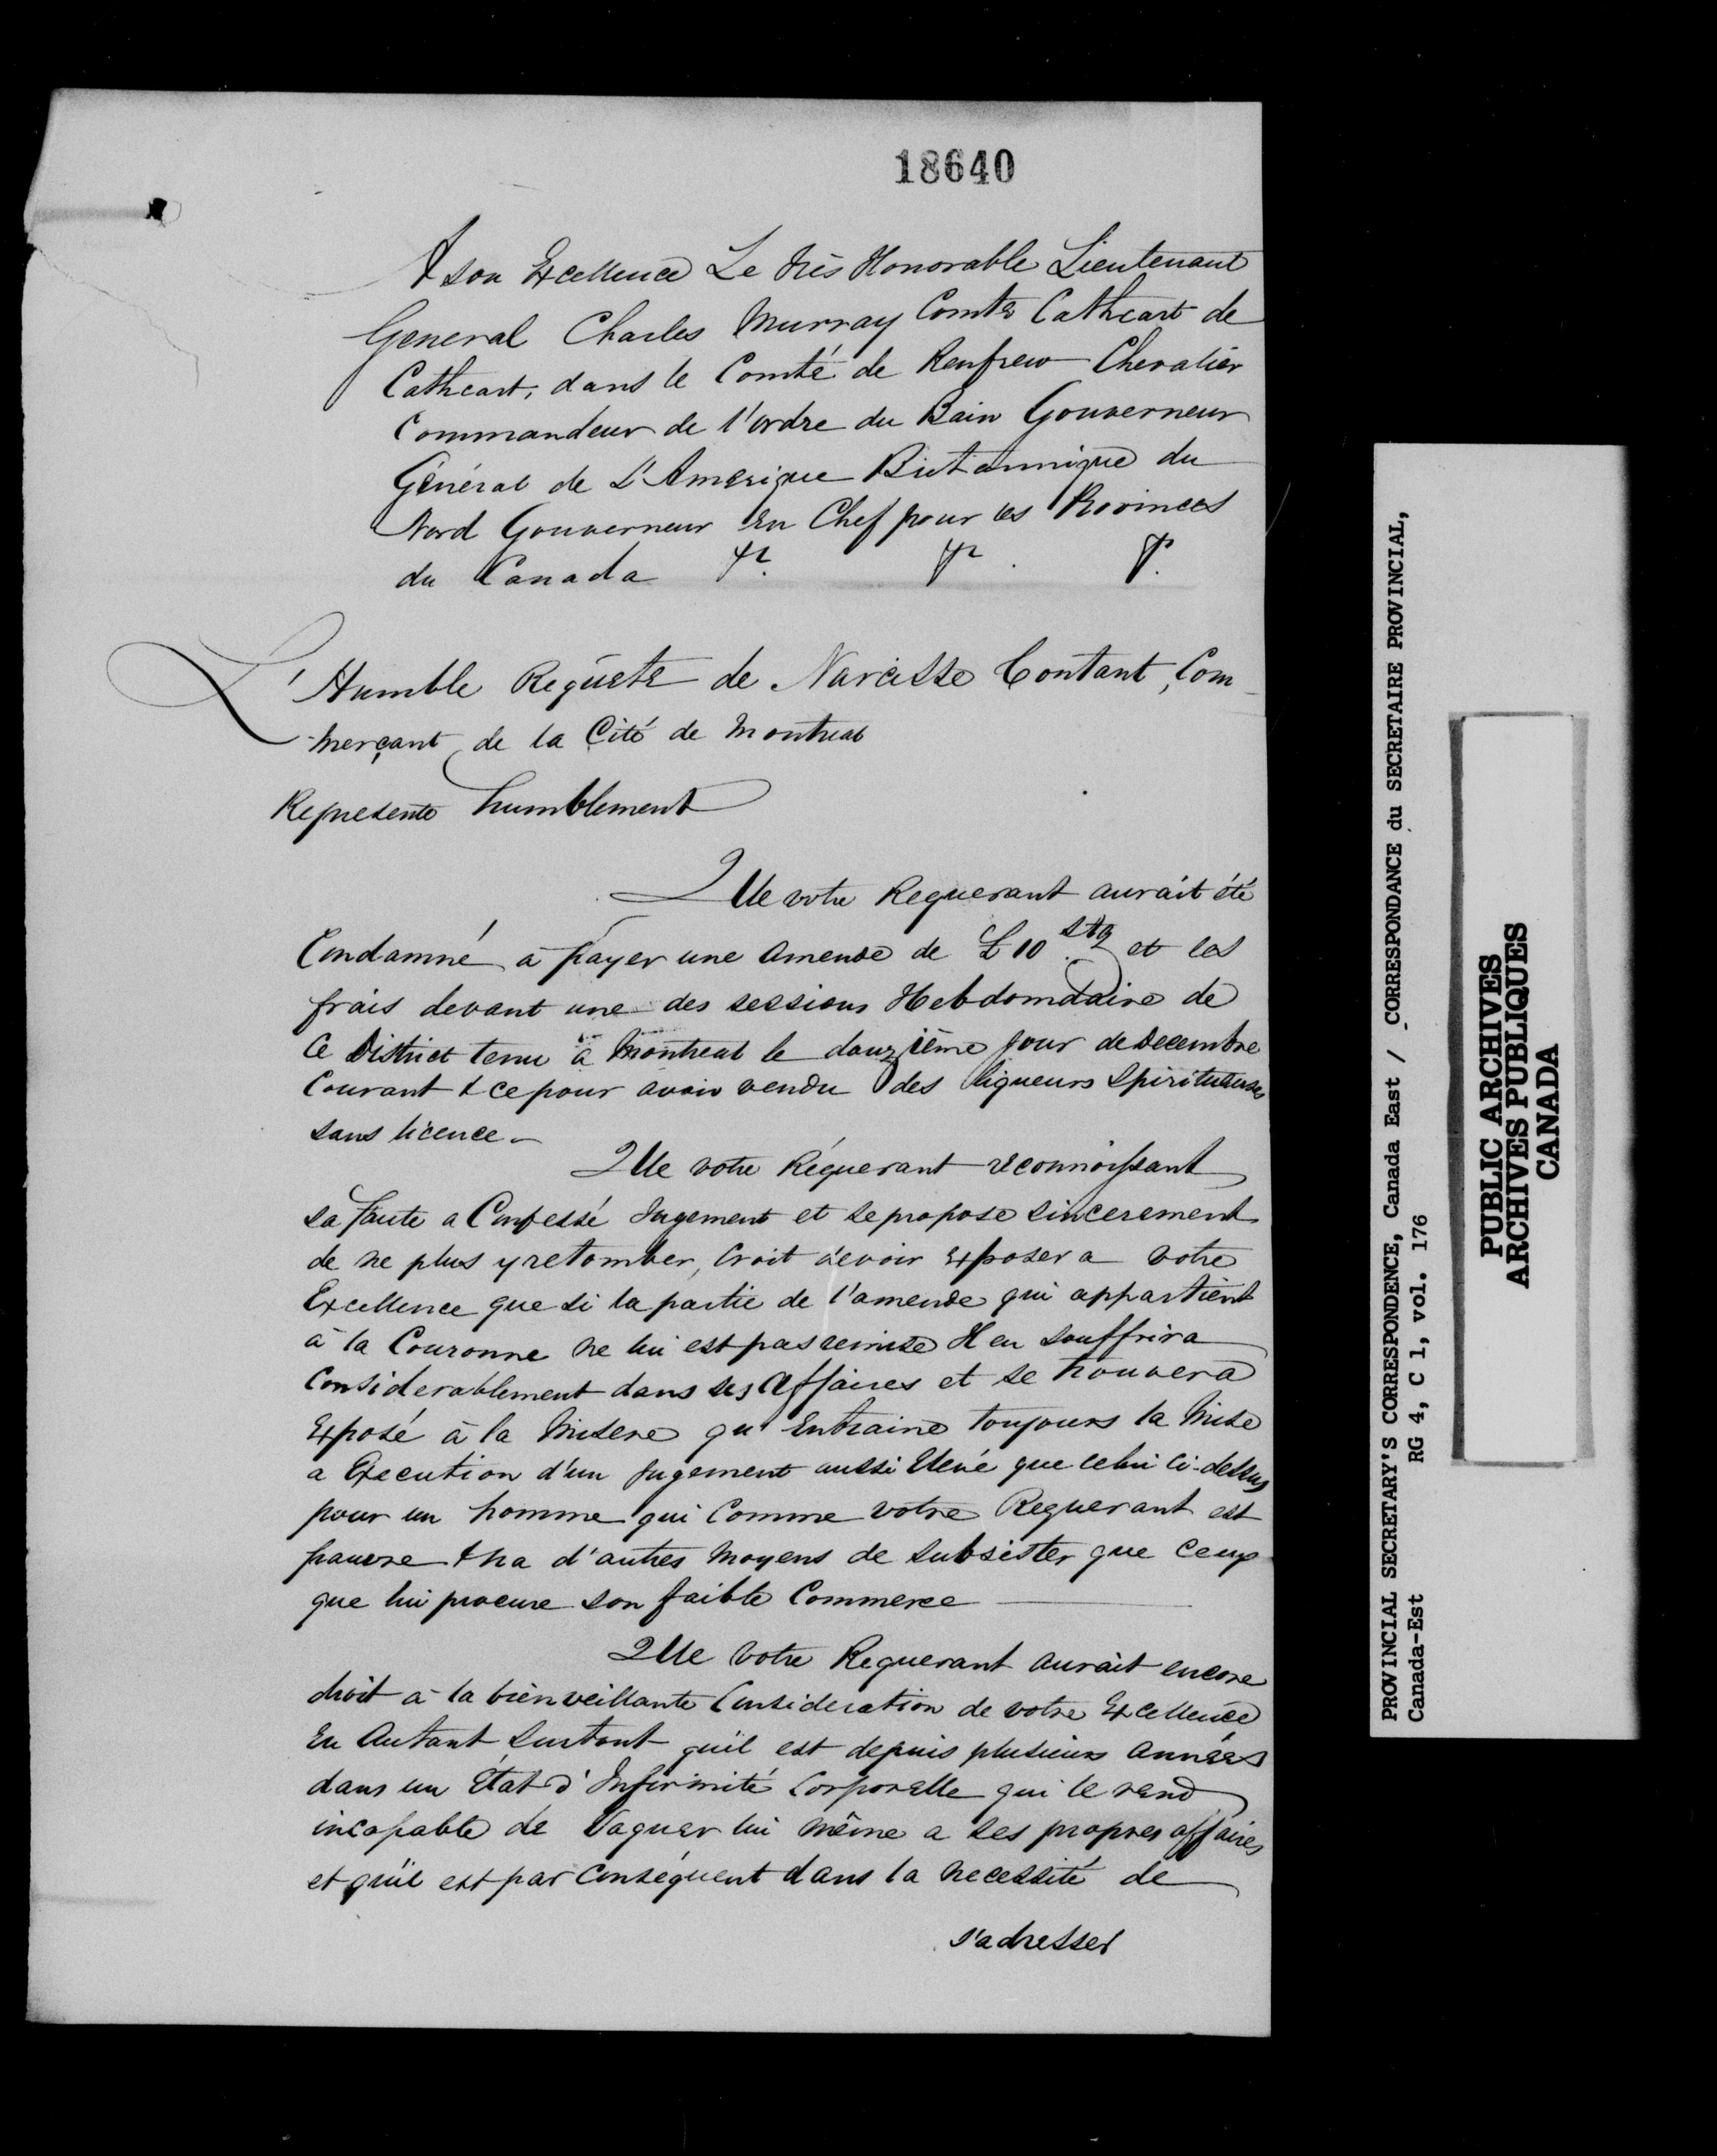 18640
A son Excellence Le très Honorable Lieutenant
General Charles Murray Comte Cathcart de
Cathcart, dans le Comté de Renfrew Chevalier
Commandeur de l'ordre du Bain Gouverneur
Général de L'Amerique Britannique du
Nord Gouverneur En Chef pour les Provinces
du Canada &c. &c. &c.
L'Humble Requête de Narcisse Contant, Com-
-merçant de la Cité de Montreal
Represente humblement
QUe votre Requerant aurait été
Condamné a payer une Amende de £10 Stg et les
frais devant une des sessions Hebdomadaire de
Ce District tenu à Montreal le douzième jour de Decembre
Courant & ce pour avoir vendu des liqueurs Spiritueuses
sans licence.-
QUe votre Requerant reconnoissant
sa faute a Confessé Jugement et se propose sincerement
de ne plus y retomber, Croit devoir Exposer a votre
Excellence que si la partie de l'amende qui appartient
à la Couronne ne lui est pas remise Il en souffrira
Considerablement dans ses Affaires et se trouvera
Exposé à la Misere qu'Entraine toujours la Mise
a Execution d'un jugement aussi Elevé que celui Ci-dessus
pour un homme qui Comme votre Requerant est
pauvre & na d'autres Moyens de subsister que Ceux
que lui procure son faible Commerce
QUe votre Requerant aurait encore
droit a la bienveillante Consideration de votre Excellence
En Autant Surtout qu'il est depuis plusieurs Années
dans un Etat d'Infirmité Corporelle qui le rend
incapable de Vaquer lui même a ses propres affaires
et qu'il est par Conséquent dans la Necessité de
s'adresser
PROVINCIAL SECRETARY'S CORRESPONDENCE, Canada East / CORRESPONDANCE du SECRETAIRE PROVINCIAL,
Canada-Est RG 4, C 1, vol. 176
PUBLIC ARCHIVES
ARCHIVES PUBLIQUES
CANADA